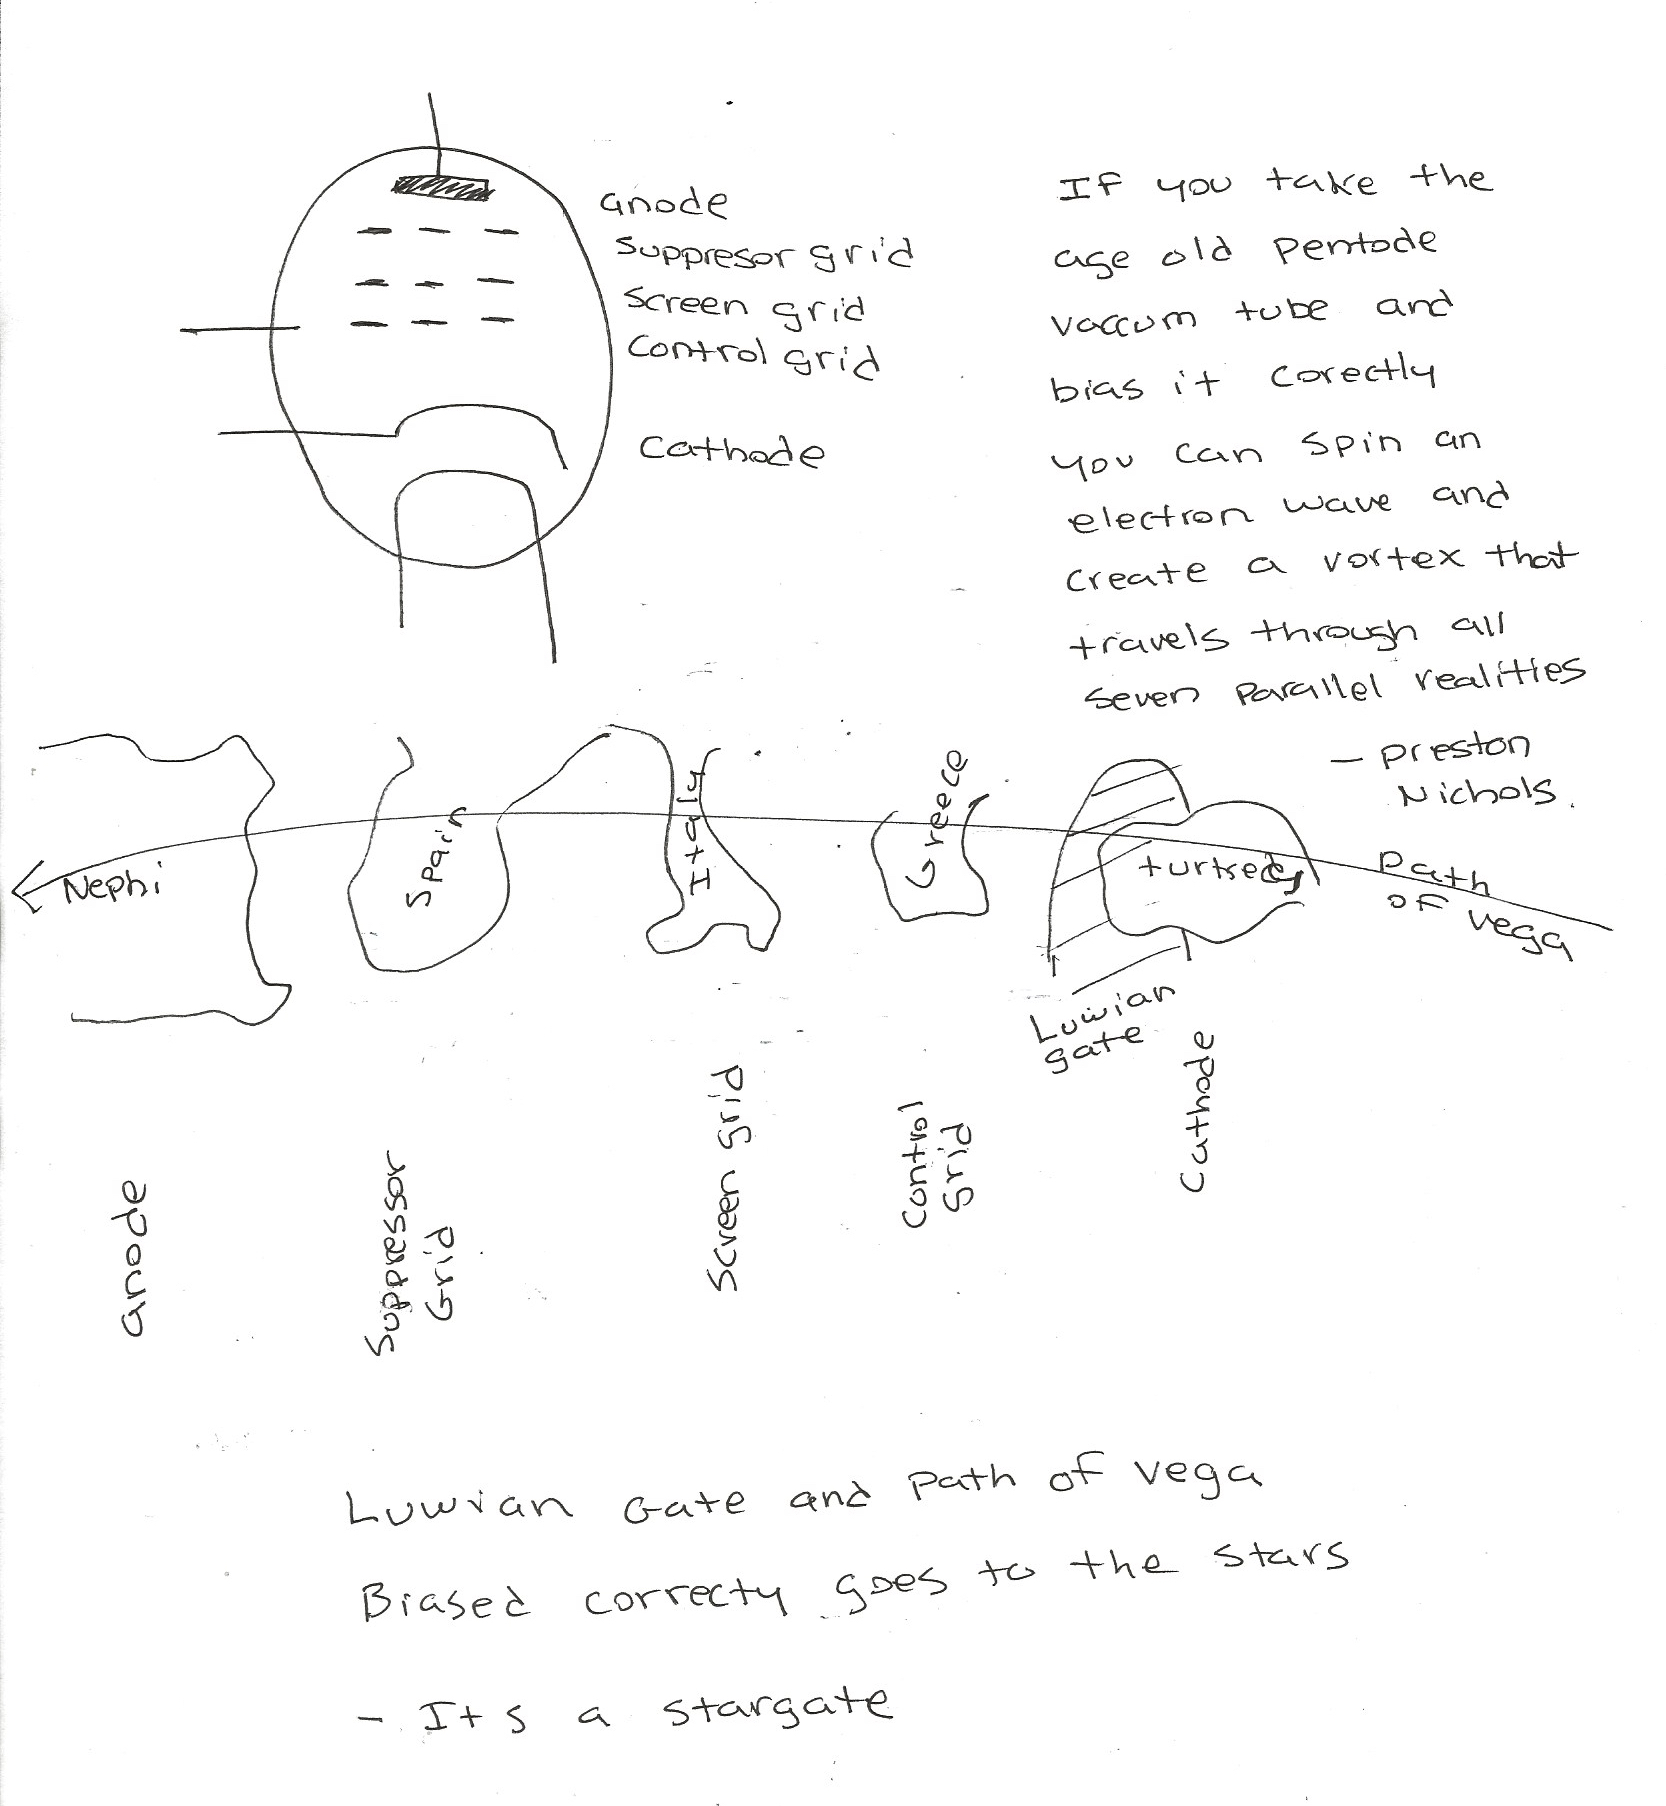 anode
Suppresor grid
Screen grid
Control grid
Cathode
If you take the
age old Pentode
vaccum tube and
bias it corectly
you can spin an
electron wave and
create a vortex that
travels through all
seven parallel realities
- Preston
Nichols.
Nephi
Spain
Italy
Greece
turkey
Path
of vega
Luwian
gate
anode
Suppressor
Grid
Screen grid
Control
Grid
Cathode
Luwian Gate and Path of Vega
Biased correcty goes to the stars
- Its a stargate